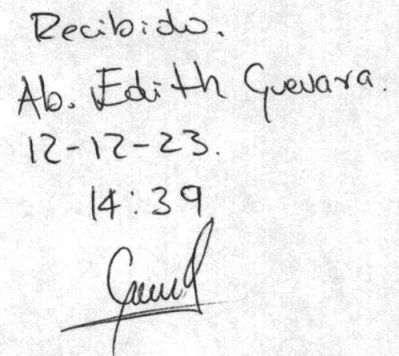 Recibido.
Ab. Edith Guevara.
12-12-23.
14:39